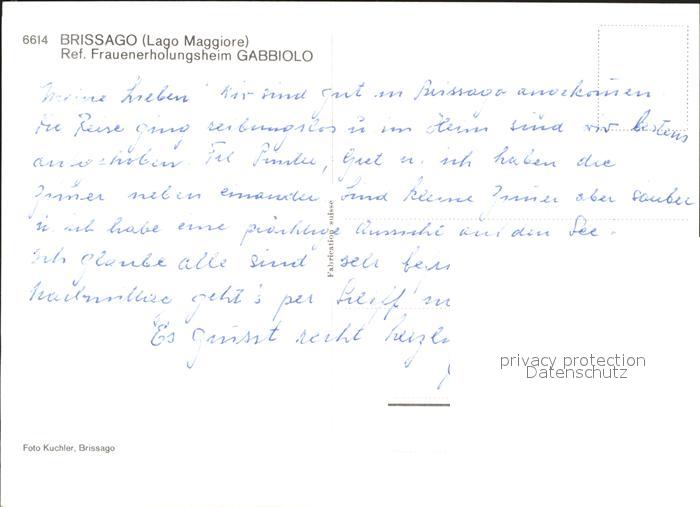 6614 BRISSAGO (Lago Maggiore)
Ref. Frauenerholungsheim GABBIOLO
Meine Lieben! Wir sind gut in Brissago angekommen.
Die Reise ging reibungslos u. im Heim sind wir bestens
angeschrieben. Frl. Gret u. ich haben die
Zimmer neben einander. Sind kleine Zimmer aber sauber
u. ich habe eine prächtige Aussicht auf den See.
Ich glaube alle sind sehr
geht's per Schiff
Es grüsst recht herzl
Fabrication suisse
privacy protection
Datenschutz
Foto Kuchler, Brissago